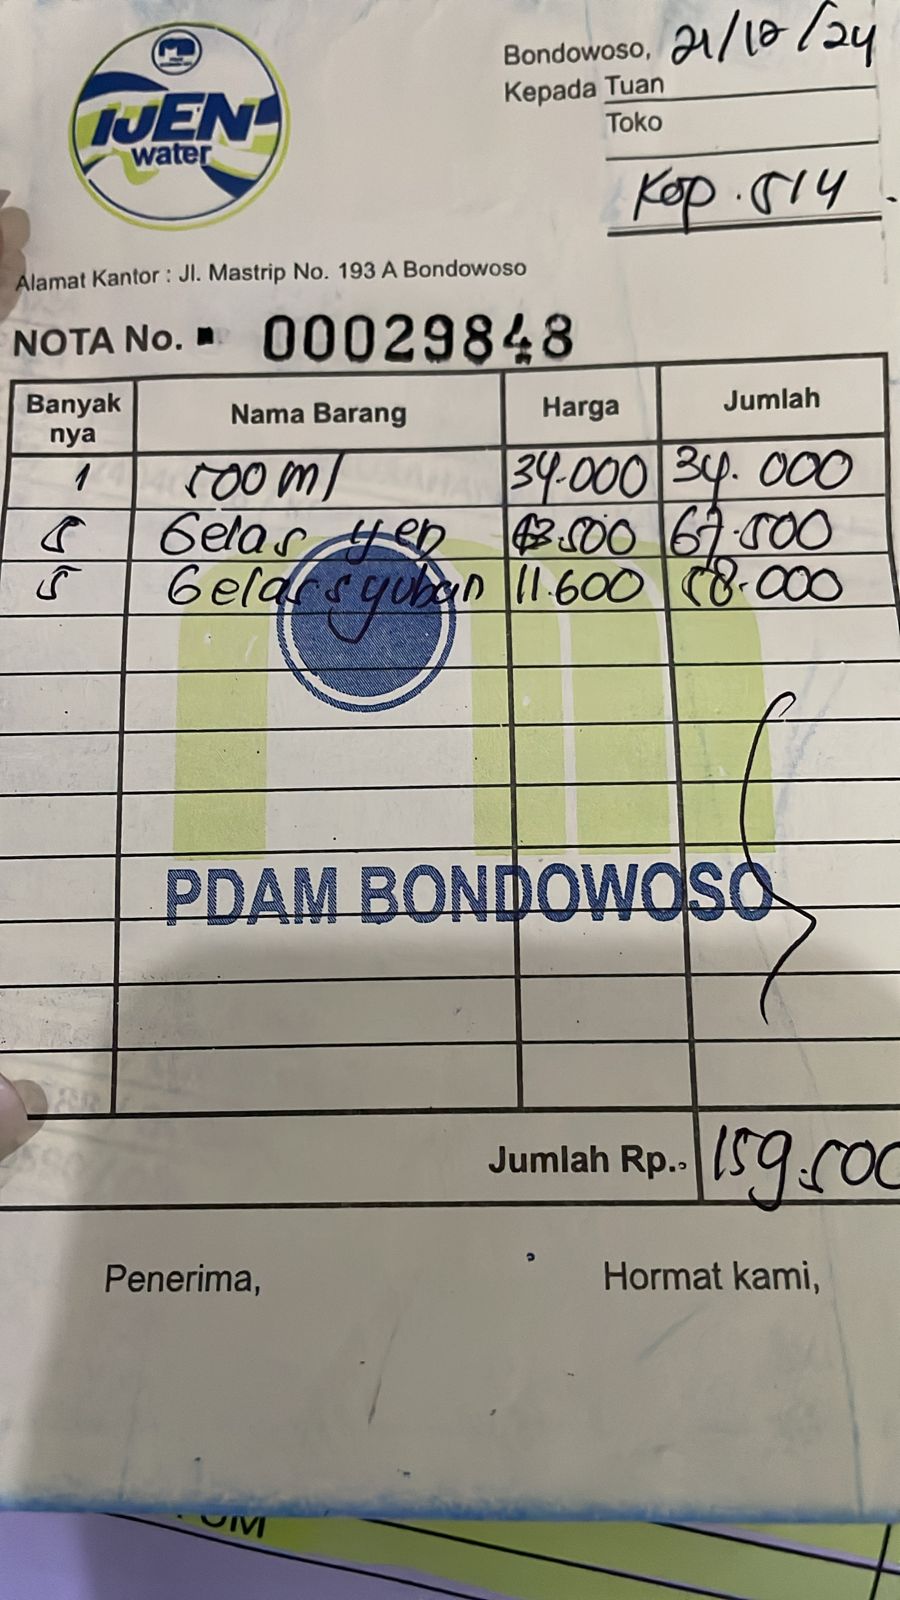 IJEN
water
Bondowoso, 21/12/24
Kepada Tuan
Toko
Kop. 514
Alamat Kantor : Jl. Mastrip No. 193 A Bondowoso
NOTA No. 00029848
Banyak nya Nama Barang Harga Jumlah
1 500 ml 34.000 34.000
5 Gelas yen 13.500 67.500
5 Gelas syuban 11.600 58.000
PDAM BONDOWOSO
Jumlah Rp. 159.500
Penerima, Hormat kami,